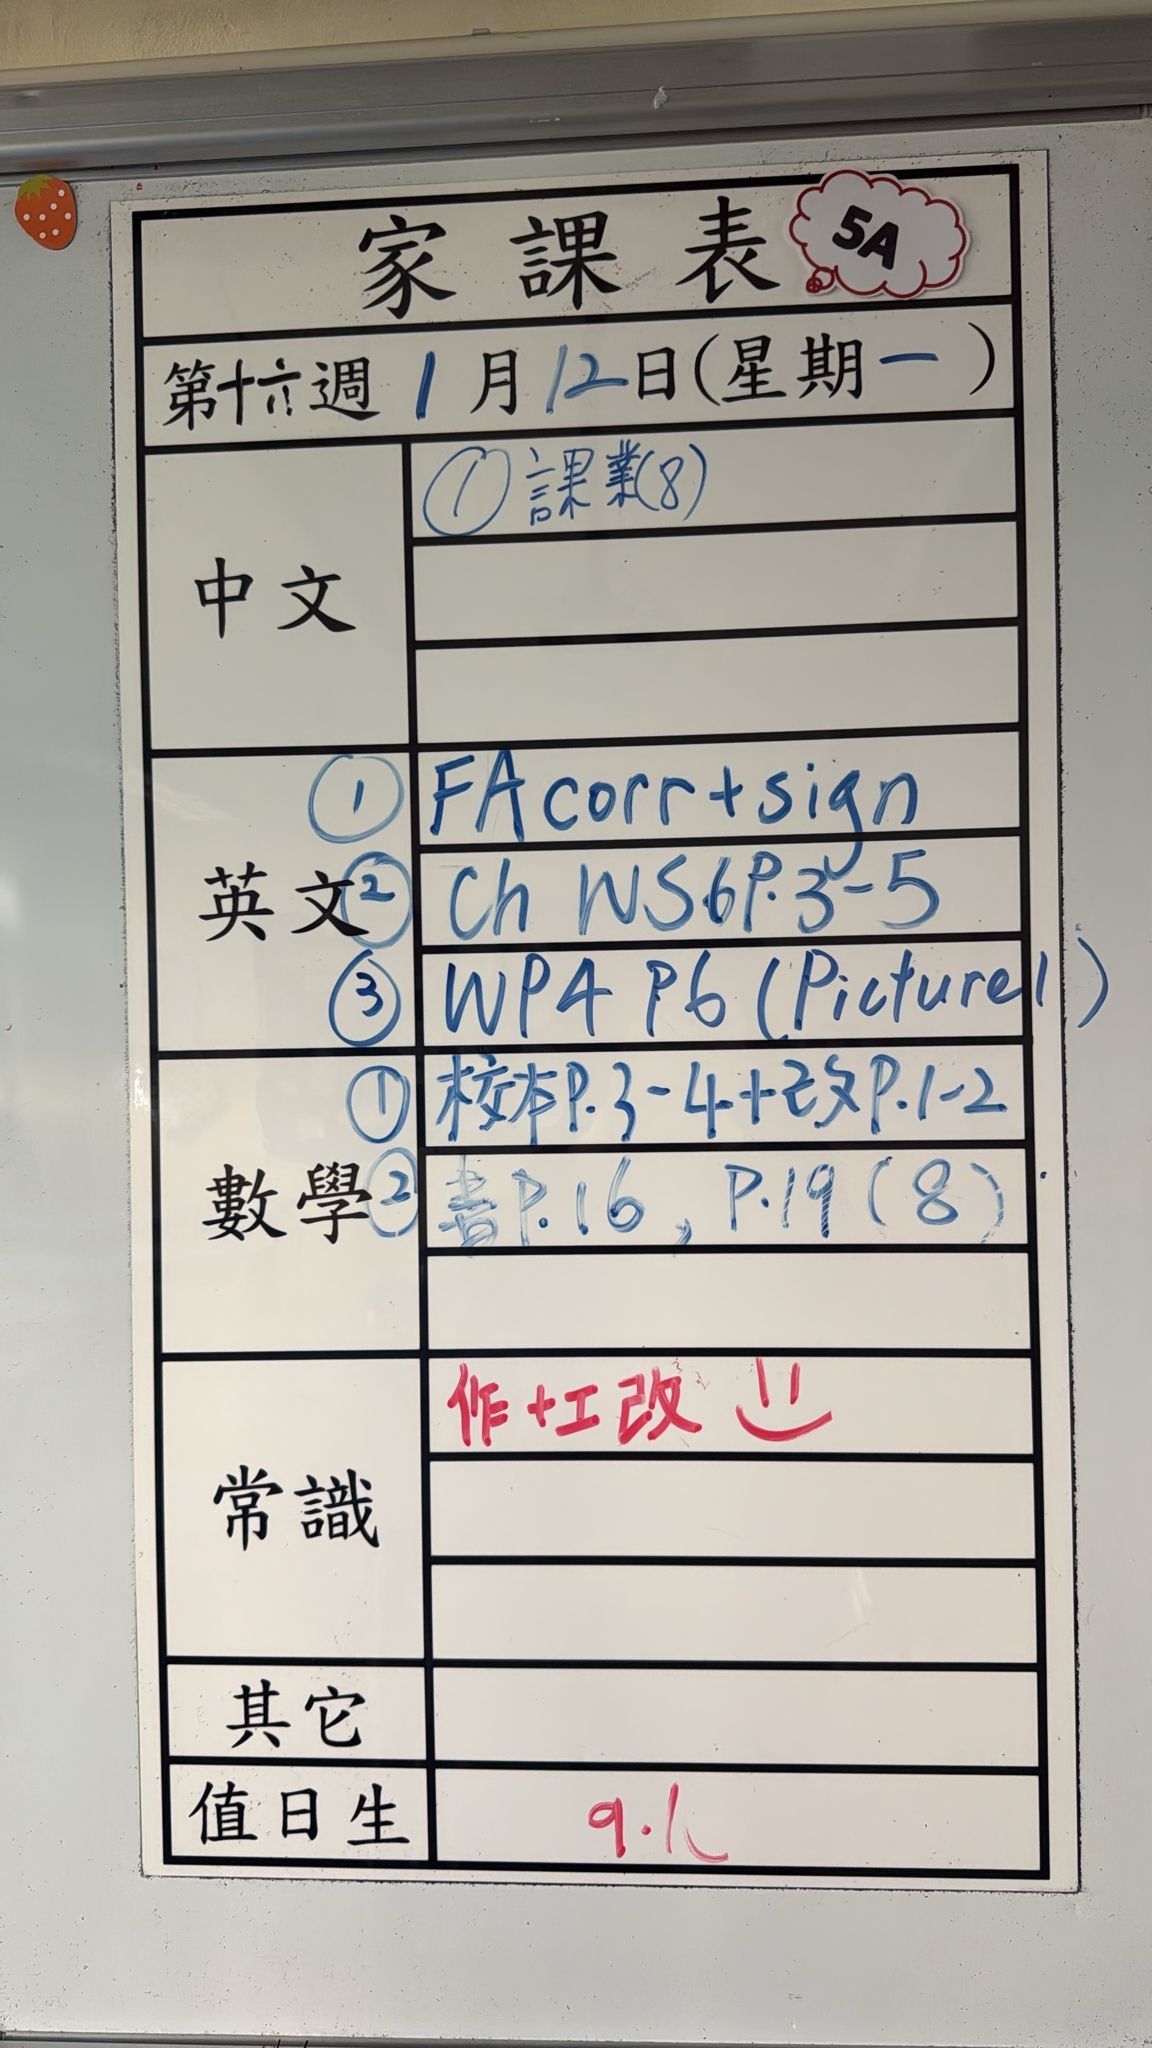 家課表 5A
第十六週 1月12日(星期一)
中文
① 課業(8)
英文
① FA corr + sign
② Ch WS6 P.3-5
③ WP4 P6 (Picture1)
數學
① 校本P.3-4+改P.1-2
② 書P.16, P.19(8)
常識
作+工改
其它
值日生
9.